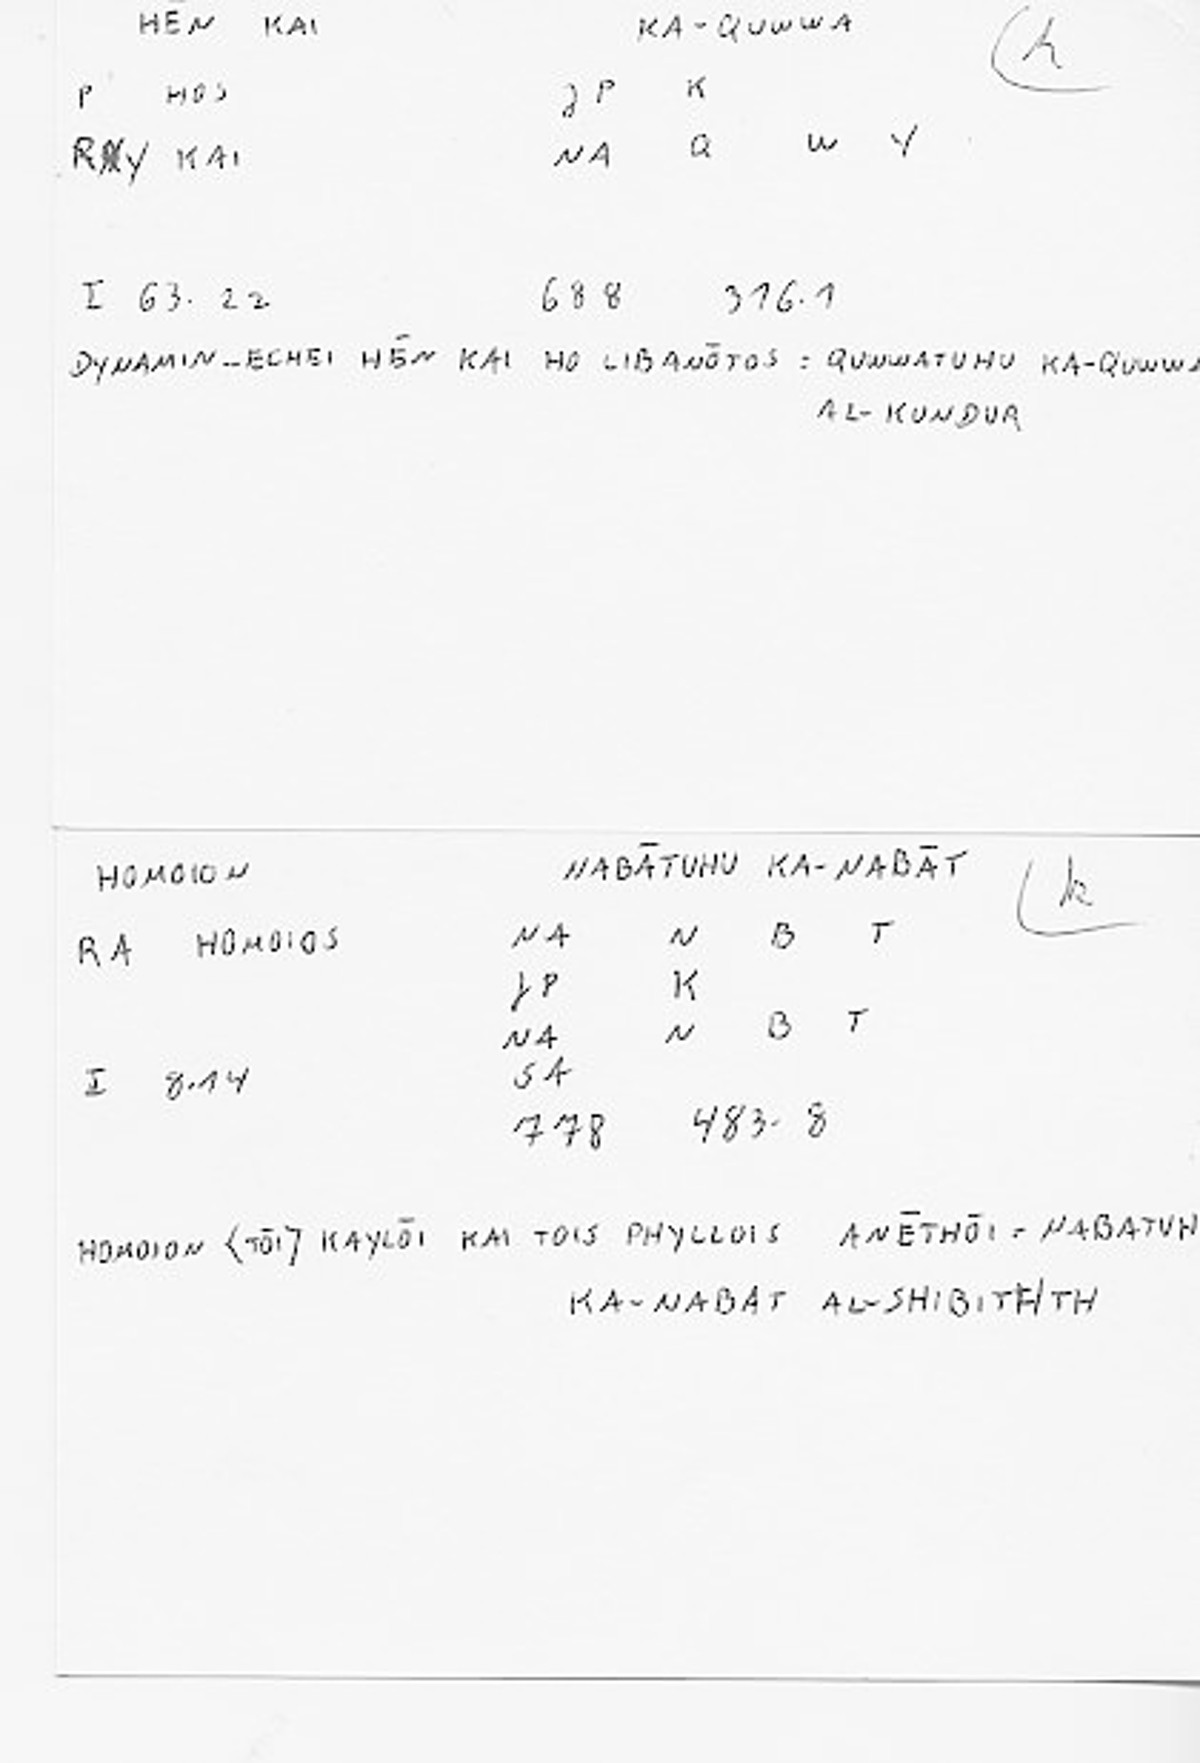 HĒN KAI KA-QUWWA h
P HOS JP K
RY KAI NA Q W Y
I 63.22 688 316.1
DYNAMIN_ECHEI HĒN KAI HO LIBANŌTOS = QUWWATUHU KA-QUWWA
AL-KUNDUR
HOMOION NABĀTUHU KA-NABĀT k
RA HOMOIOS NA N B T
JP K
NA N B T
I 8.14 SA
778 483.8
HOMOION <TŌI] KAYLŌI KAI TOIS PHYLLOIS ANĒTHŌI = NABATUH
KA-NABAT AL-SHIBITH/TH